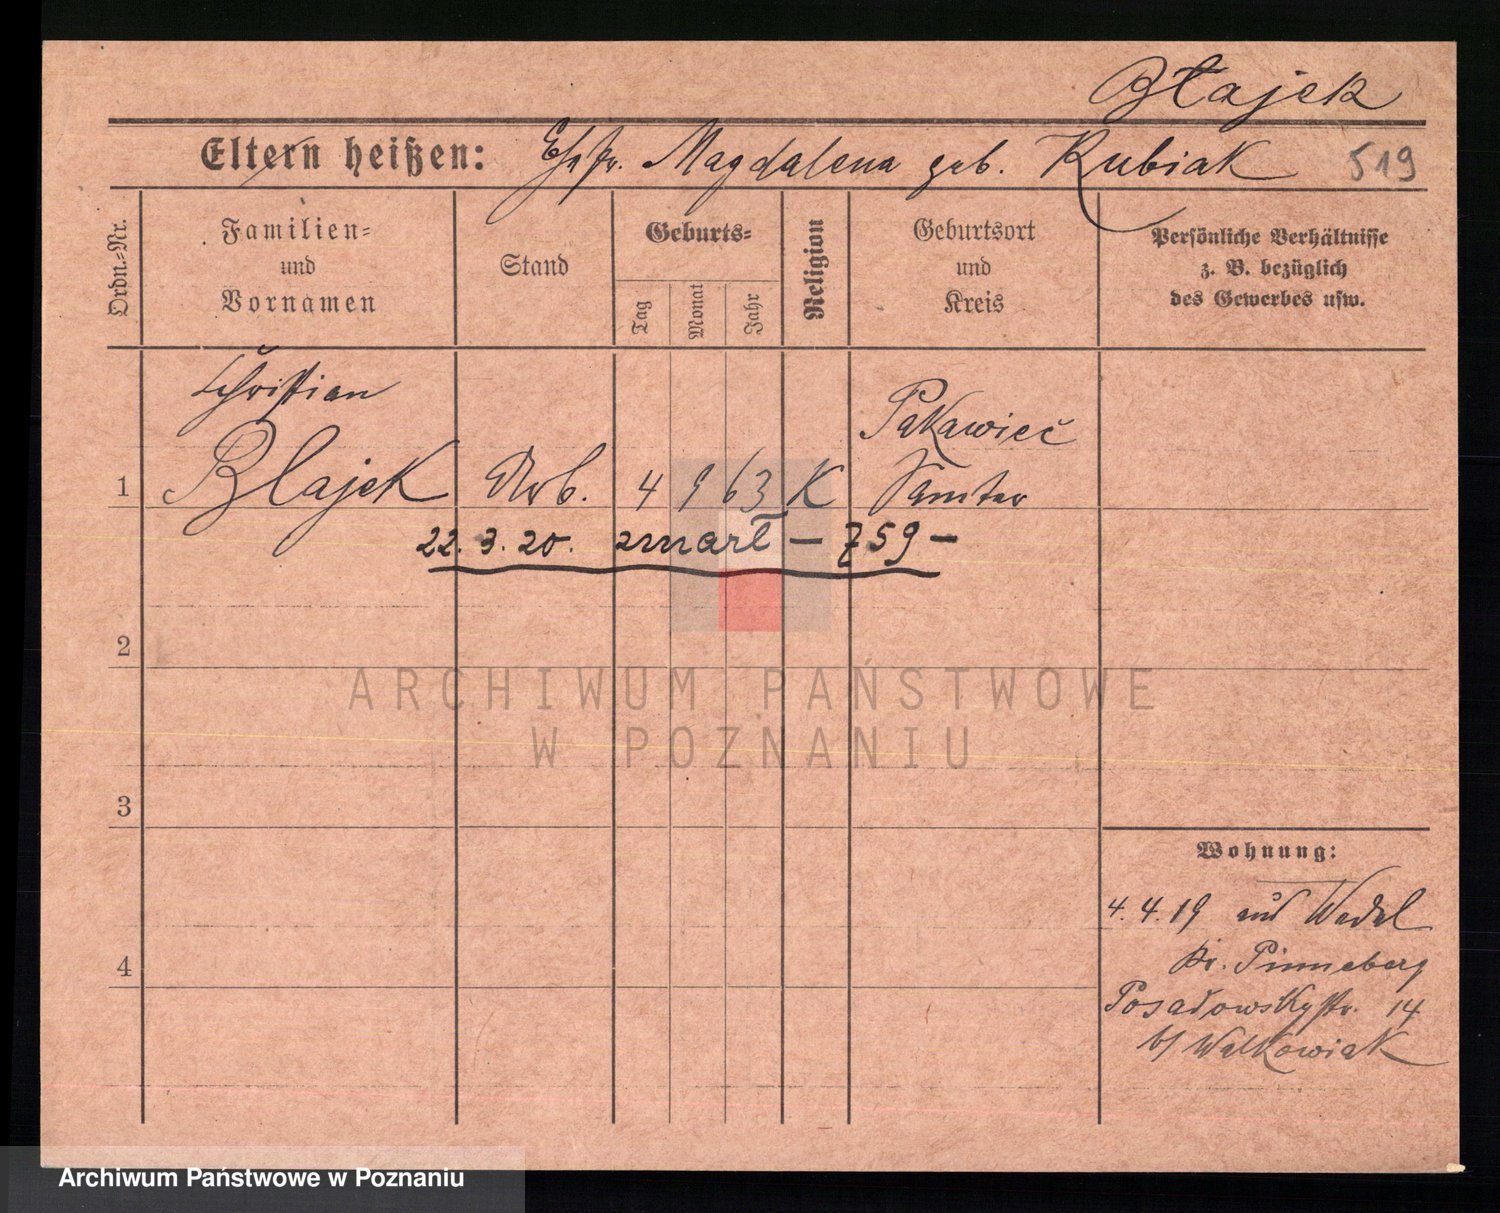 Błajek
Eltern heißen: Ehefr. Magdalena geb. Kubiak 519
Ordn.-Nr.
Familien-
und
Vornamen
Stand
Geburts-
Tag
Monat
Jahr
Religion
Geburtsort
und
Kreis
Persönliche Verhältnisse
z. B. bezüglich
des Gewerbes usw.
Christian
Blajek
1
Arb.
4 9 63 K
Samter
22. 3. 20. zmarł – 759 –
2
ARCHIWUM PAŃSTWOWE
W POZNANIU
3
4
Wohnung:
4. 4. 19 aus Wedel
Kr. Pinneberg
Posadowskystr. 14
b/ Walkowiak
Archiwum Państwowe w Poznaniu